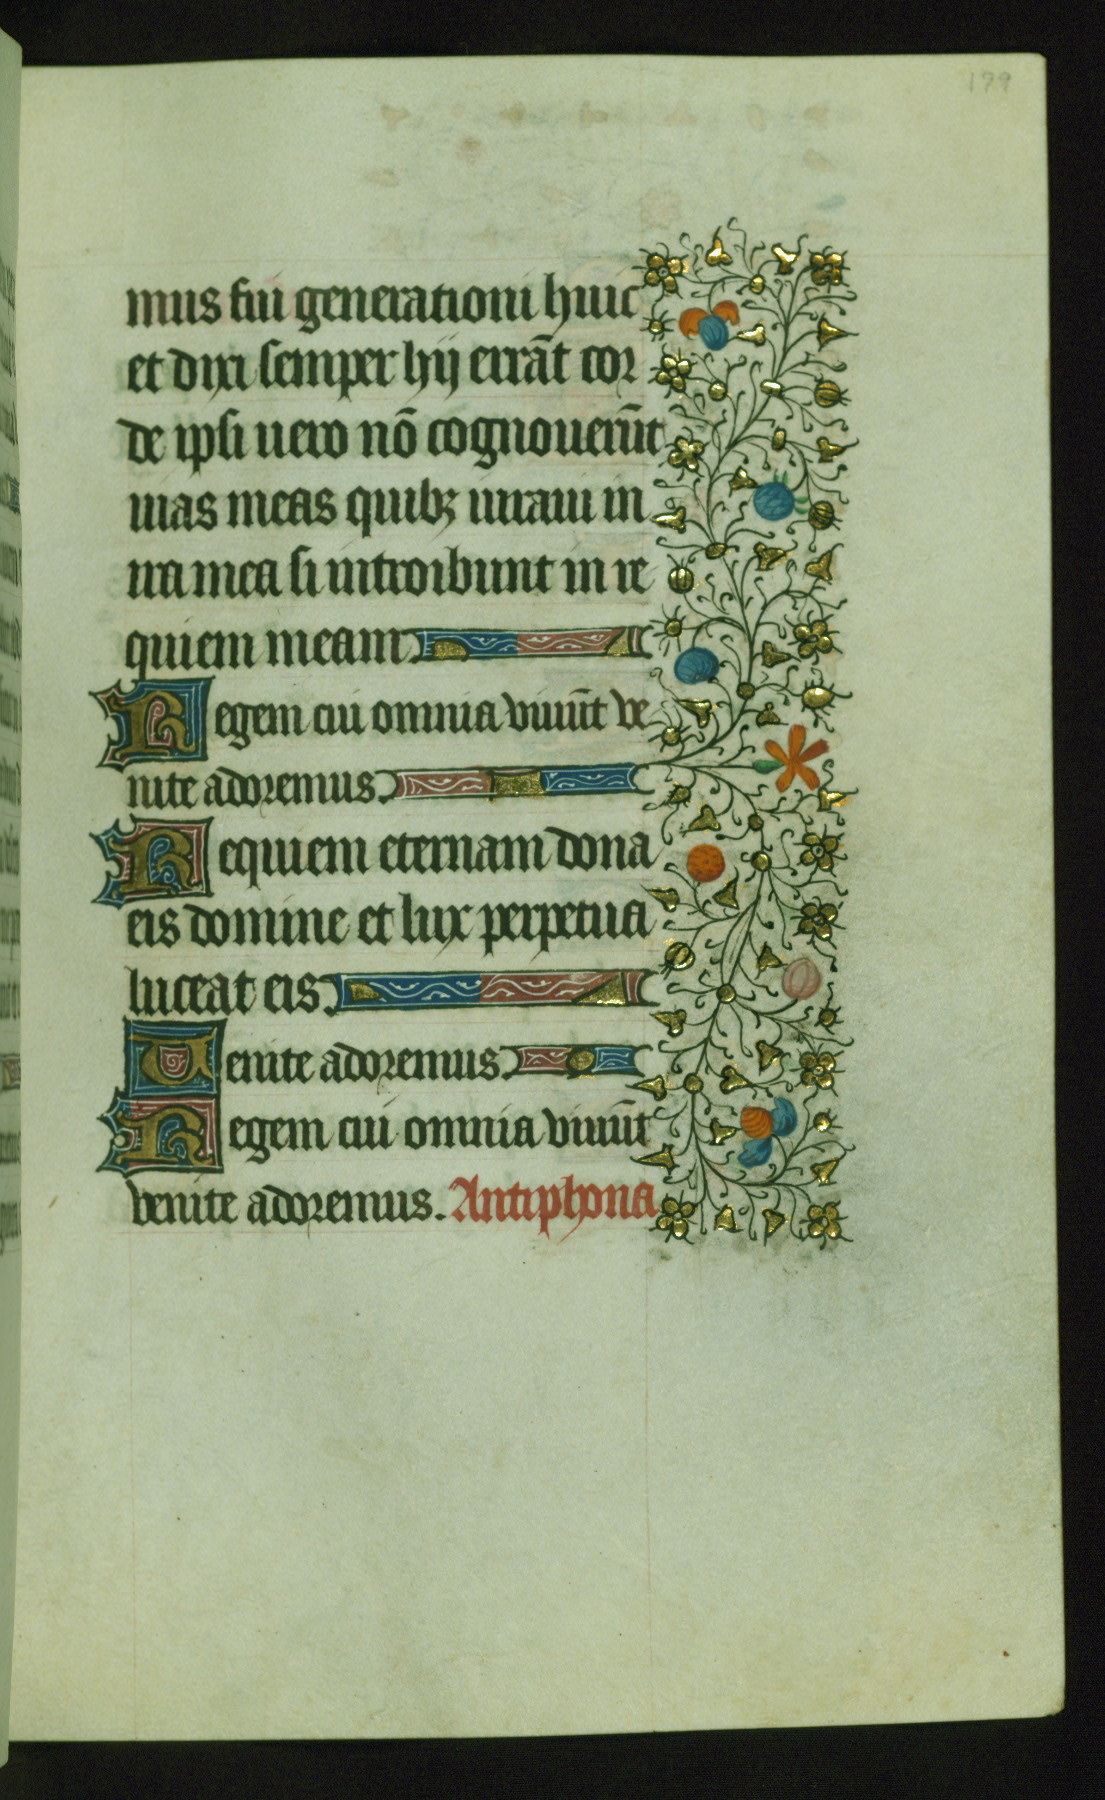 179
mus fui generationi huic
et dixi semper hij errāt cor
de ipsi uero nō cognouerūt
uias meas quibꝫ iuraui in
ira mea si introibunt in re
quiem meam
Regem cui omnia viuūt ve
nite adoremus
Requiem eternam dona
eis domine et lux perpetua
luceat eis
Uenite adoremus
Regem cui omnia viuūt
venite adoremus. Antiphona